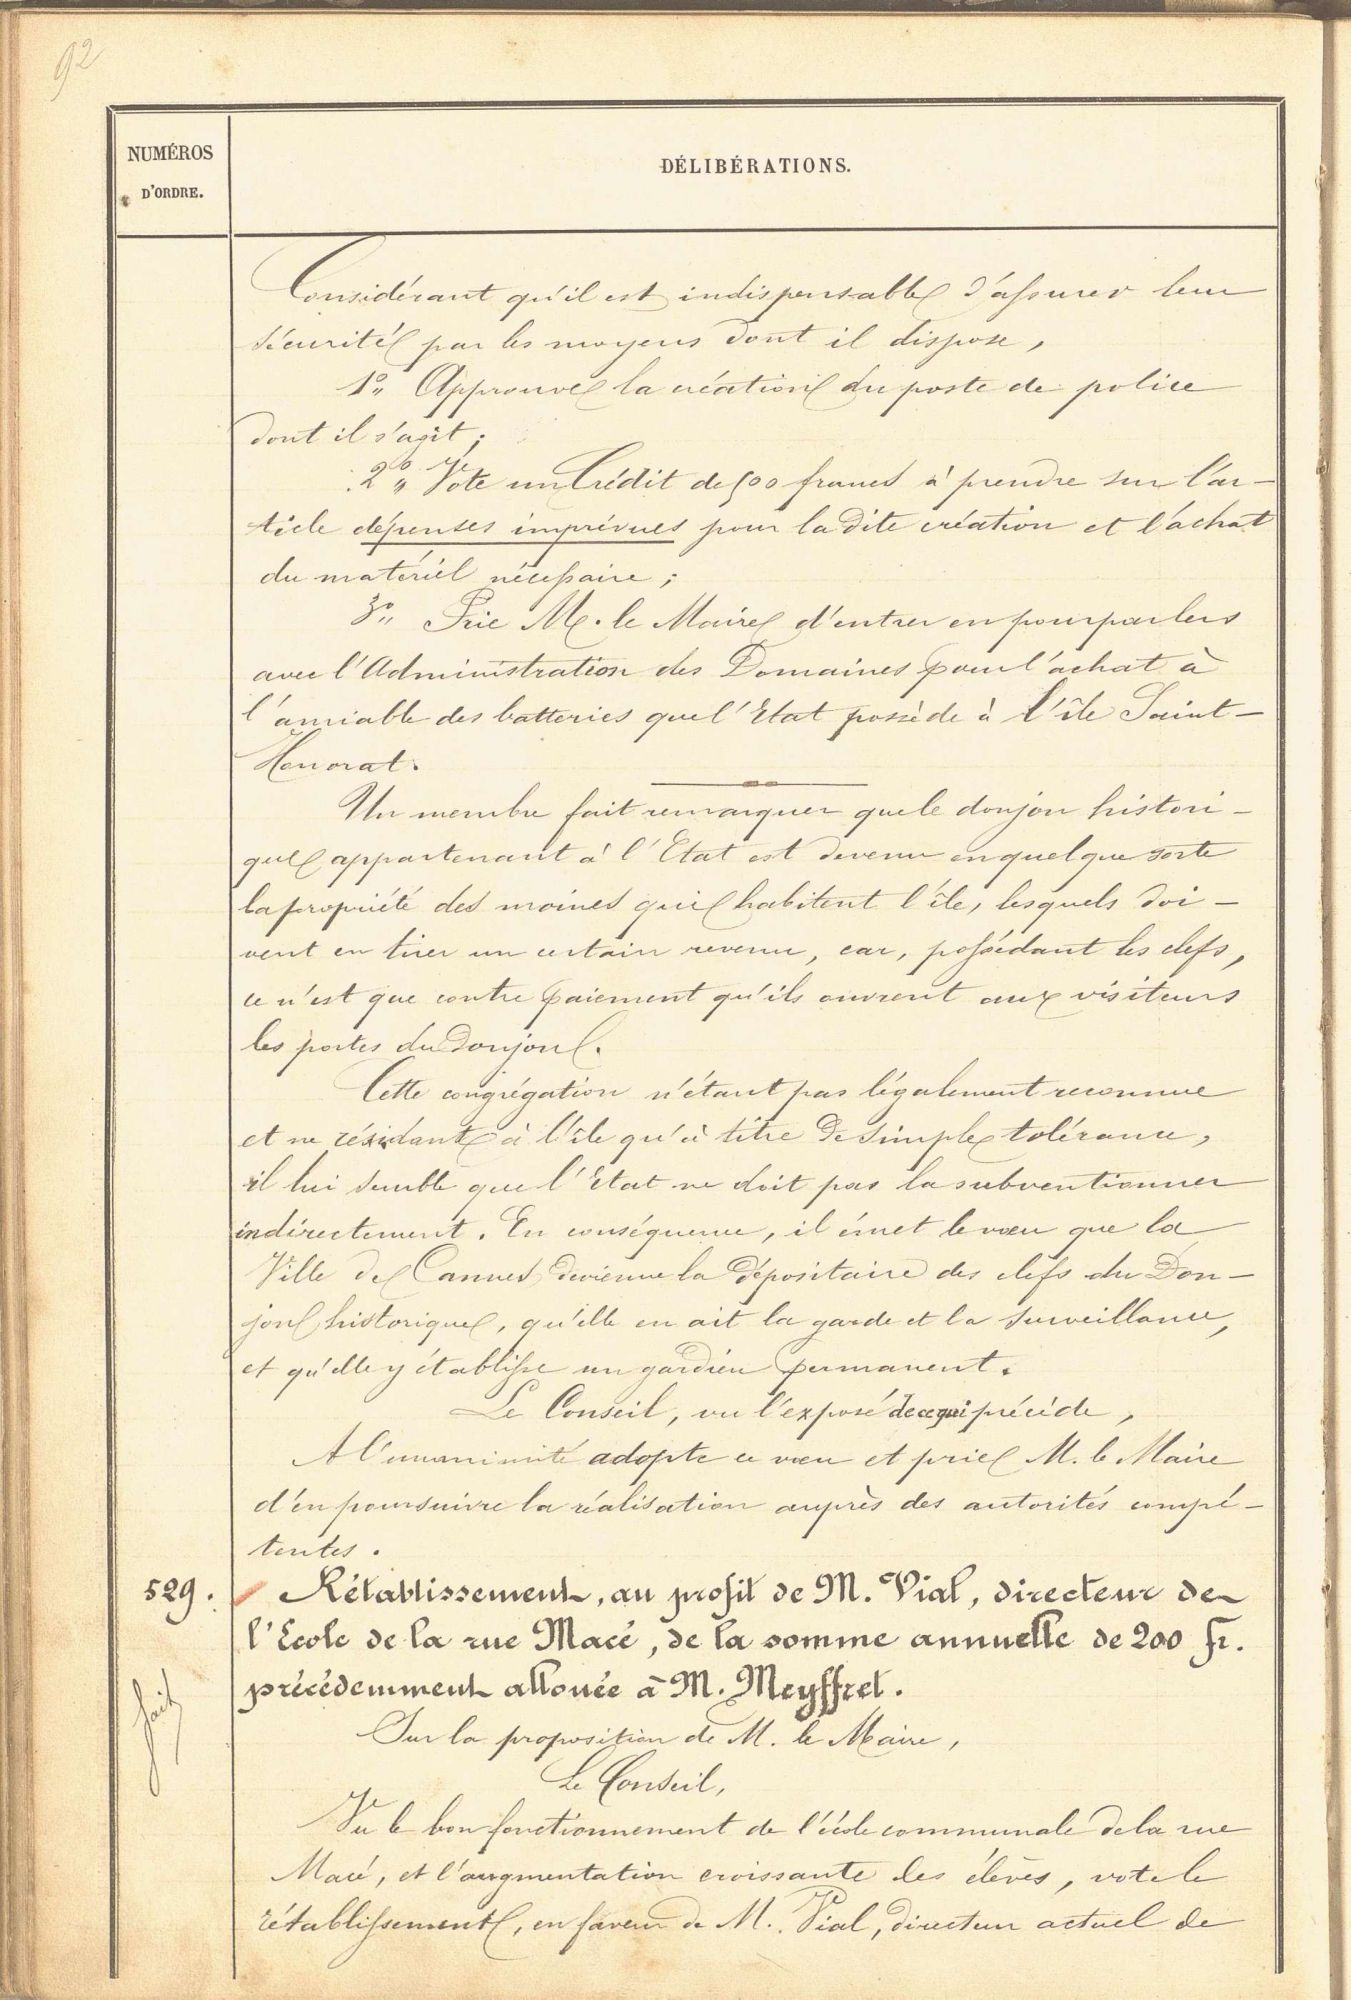 92
NUMÉROS
D'ORDRE.
DÉLIBÉRATIONS.
Considérant qu'il est indispensable d'assurer leur
sécurité par les moyens dont il dispose,
1°,, Approuve la création du poste de police
dont il s'agit ;
2°,, Vote un Crédit de 500 francs à prendre sur l'ar-
ticle dépenses imprévues pour la dite création et l'achat
du matériel nécessaire ;
3°,, Prie M. le Maire d'entrer en pourparlers
avec l'Administration des Domaines pour l'achat à
l'amiable des batteries que l'Etat possède à l'île Saint-
Honorat.
Un membre fait remarquer que le donjon histori-
que appartenant à l'Etat est devenu en quelque sorte
la propriété des moines qui habitent l'île, lesquels doi-
vent en tirer un certain revenu, car, possédant les clefs,
ce n'est que contre paiement qu'ils ouvrent aux visiteurs
les portes du Donjon.
Cette congrégation n'étant pas légalement reconnue
et ne résidant à l'île qu'à titre de simple tolérance,
il lui semble que l'Etat ne doit pas la subventionner
indirectement. En conséquence, il émet le vœu que la
Ville de Cannes devienne la dépositaire des clefs du Don-
jon historique, qu'elle en ait la garde et la surveillance,
et qu'elle y établisse un gardien permanent.
Le Conseil, vu l'exposé de ce qui précède,
A l'unanimité adopte ce vœu et prie M. le Maire
d'en poursuivre la réalisation auprès des autorités compé-
tentes.
529.
Rétablissement, au profit de M. Vial, directeur de
l'Ecole de la rue Macé, de la somme annuelle de 200 fr.
précédemment allouée à M. Meyffret.
fait
Sur la proposition de M. le Maire,
Le Conseil,
Vu le bon fonctionnement de l'école communale de la rue
Macé, et l'augmentation croissante des élèves, vote le
rétablissement, en faveur de M. Vial, directeur actuel de